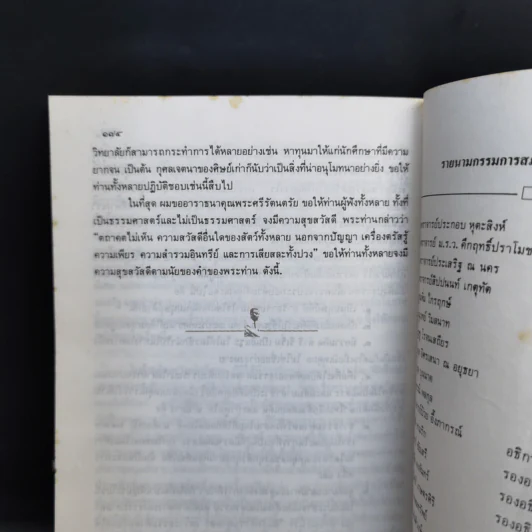 ๑๘๔
วิทยาลัยก็สามารถกระทำการได้หลายอย่างเช่น หาทุนมาให้แก่นักศึกษาที่มีความ
ยากจน เป็นต้น กุศลเจตนาของศิษย์เก่าก็นับว่าเป็นสิ่งที่น่าอนุโมทนาอย่างยิ่ง ขอให้
ท่านทั้งหลายปฏิบัติชอบเช่นนี้สืบไป
ในที่สุด ผมขออาราธนาคุณพระศรีรัตนตรัย ขอให้ท่านผู้ฟังทั้งหลาย ทั้งที่
เป็นธรรมศาสตร์และไม่เป็นธรรมศาสตร์ จงมีความสุขสวัสดี พระท่านกล่าวว่า
"ตถาคตไม่เห็น ความสวัสดีอื่นใดของสัตว์ทั้งหลาย นอกจากปัญญา เครื่องตรัสรู้
ความเพียร ความสำรวมอินทรีย์ และการเสียสละทั้งปวง" ขอให้ท่านทั้งหลายจงมี
ความสุขสวัสดีตามนัยของคำของพระท่าน ดังนี้.
รายนามกรรมการสม
อาจารย์ประกอบ หุตะสิงห์
อาจารย์ ม.ร.ว. คึกฤทธิ์ ปราโมช
อาจารย์ประเสริฐ ณ นคร
ไกรฤกษ์
วิมลนาท
ไตรเสนา ณ อยุธยา
อึ๊งภากรณ์
อธิกา
รองอ
รองอธิ